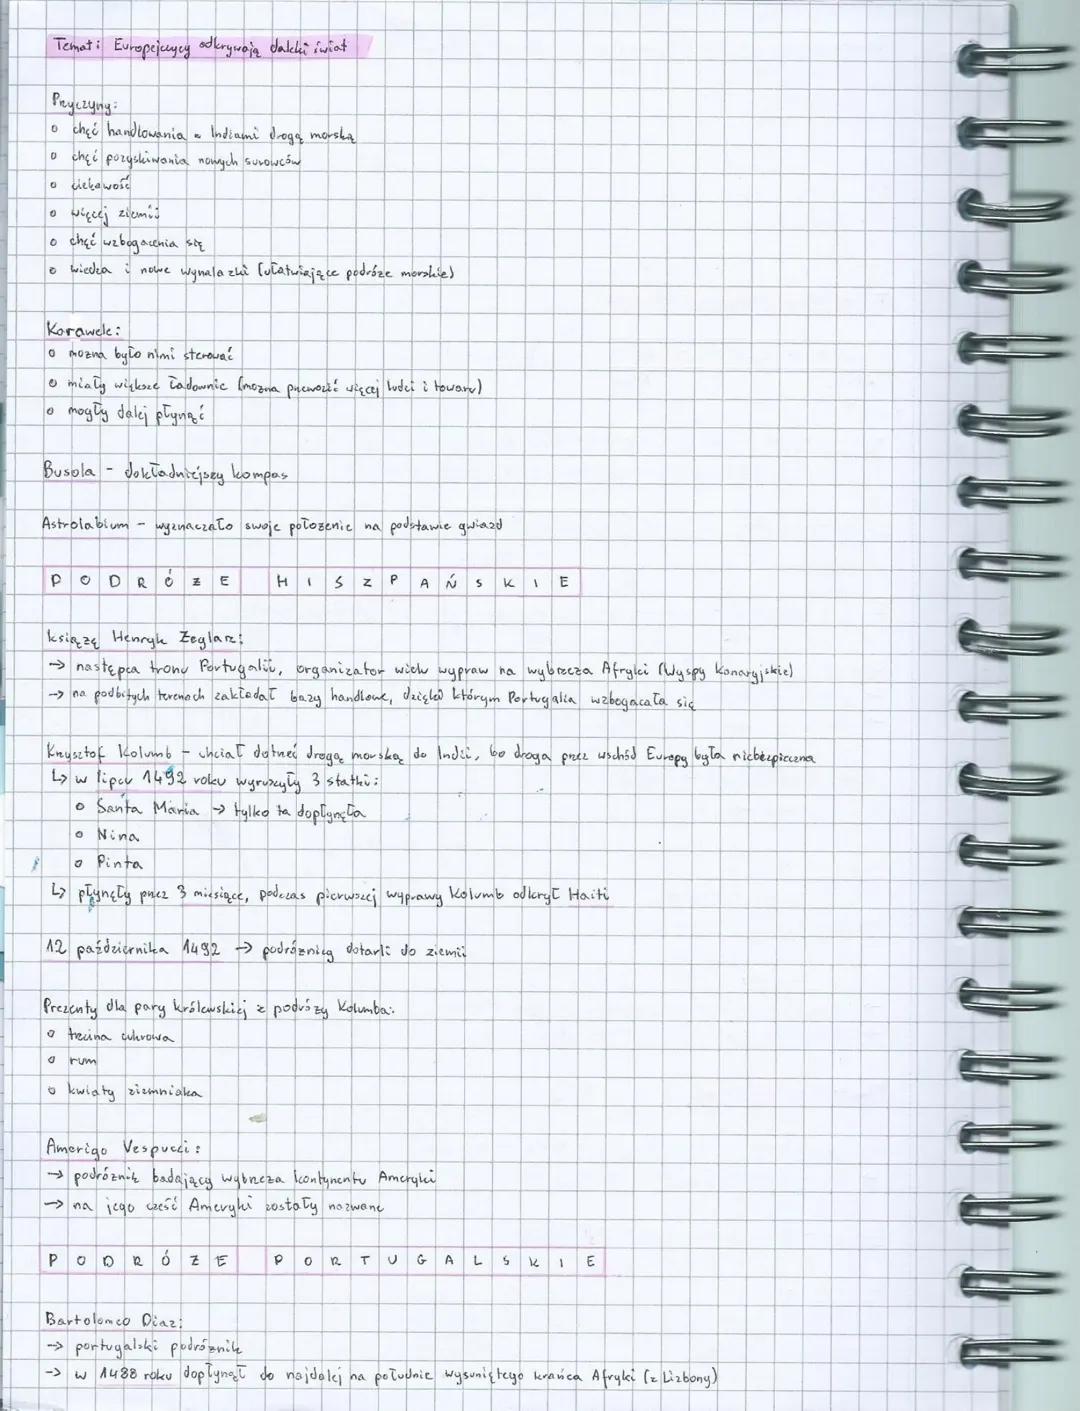 Temat: Europejczycy odkrywają daleki świat
Przyczyny:
o chęć handlowania z Indiami drogą morską
o chęć pozyskiwania nowych surowców
o ciekawość
o więcej ziemii
o chęć wzbogacenia się
o wiedza i nowe wynalazki (ułatwiające podróże morskie)
Korawele:
o mozna było nimi sterować
o miały większe ładownie (mozna przewozić więcej ludzi i towaru)
o mogły dalej płynąć
Busola - dokładniejszy kompas
Astrolabium - wyznaczało swoje połozenie na podstawie gwiazd
PODRÓŻE HISZPAŃSKIE
książę Henryk Żeglarz:
→ następca tronu Portugalii, organizator wielu wypraw na wybrzeza Afryki (Wyspy Kanaryjskie)
→ na podbitych terenach zakładał bazy handlowe, dzięki którym Portugalia wzbogacała się
Krzysztof Kolumb - chciał dotrzeć drogą morską do Indii, bo droga przez wschód Europy była niebezpieczna
↳ w lipcu 1492 roku wyruszyły 3 statki:
o Santa Maria → tylko ta dopłynęła
o Nina
o Pinta
↳ płynęły przez 3 miesiące, podczas pierwszej wyprawy Kolumb odkrył Haiti
12 października 1492 → podróznicy dotarli do ziemii
Prezenty dla pary królewskiej z podrózy Kolumba:
o trzcina cukrowa
o rum
o kwiaty ziemniaka
Amerigo Vespucci:
→ podróznik badający wybrzeza kontynentu Ameryki
→ na jego cześć Ameryki zostały nazwane
PODRÓŻE PORTUGALSKIE
Bartolomeo Diaz:
→ portugalski podróznik
→ w 1488 roku dopłynął do najdalej na południe wysuniętego krańca Afryki (z Lizbony)